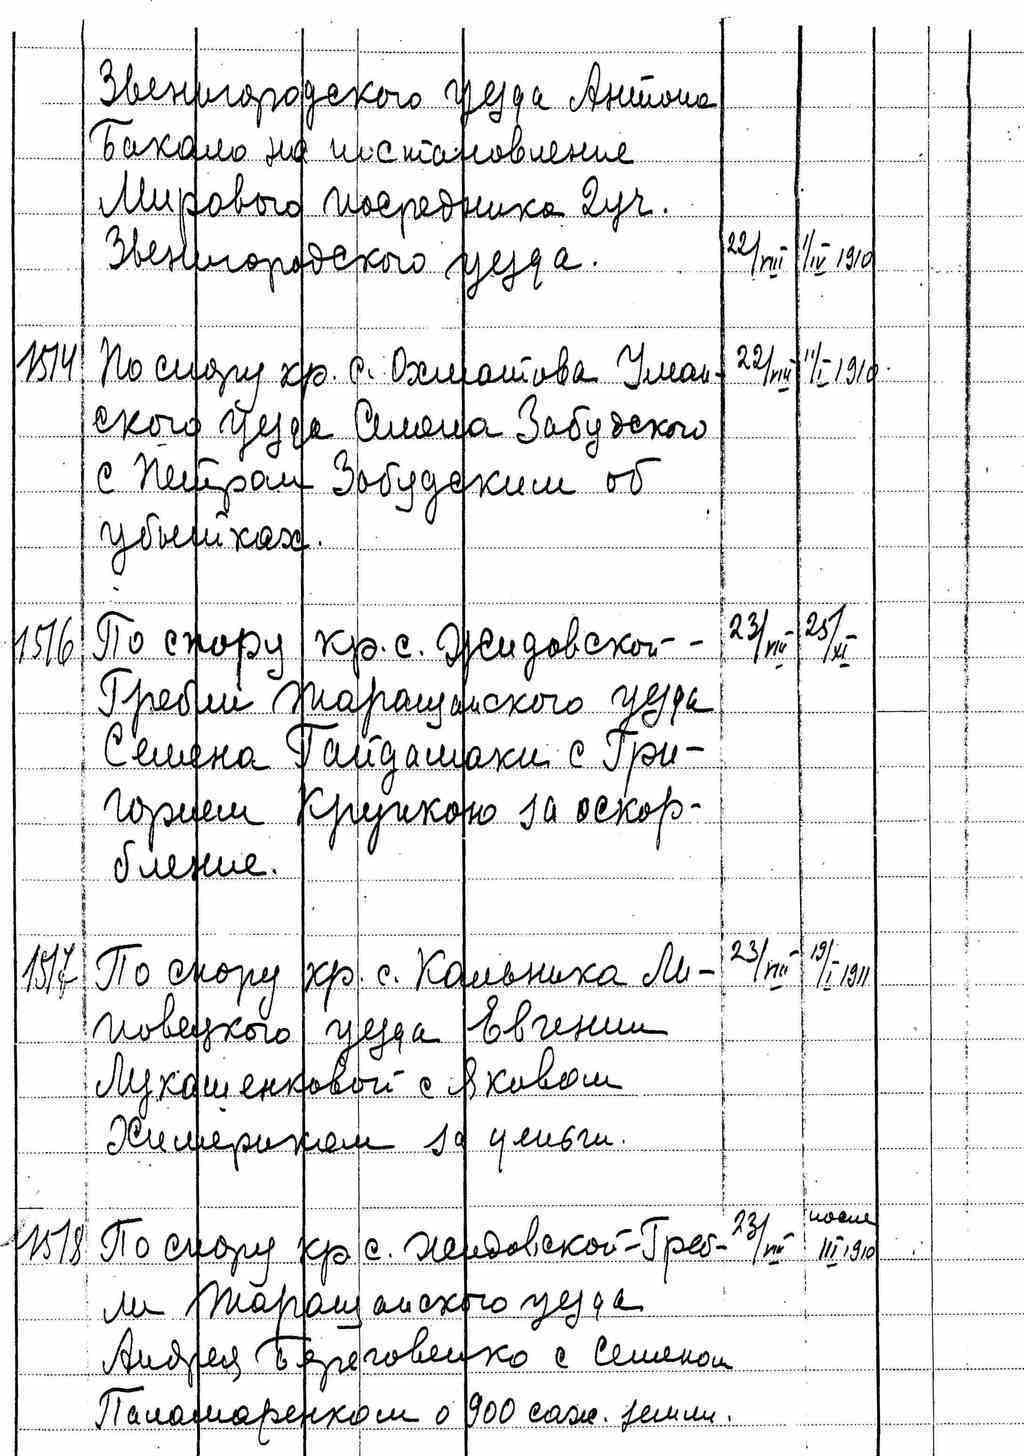 Звенигородского уезда Антона
Бакало на постановление
Мирового посредника 2 уч.
Звенигородского уезда. 22/VIII 1/IV 1910
1514 По спору кр. с. Охматова Уман-
ского уезда Семена Забудского
с Петром Забудским об
убытках. 22/VIII 11/I 1910.
1516 По спору кр. с. Жидовской-
Гребли Таращанского уезда
Семена Гайдамаки с Гри-
горием Кручкою за оскор-
бление. 23/VIII 25/XI
1517 По спору кр. с. Кальника Ли-
повецкого уезда Евгении
Лукашенковой с Яковом
Химериком за деньги. 23/VIII 19/I 1911
1518 По спору кр с. Жидовской-Греб-
ли Таращанского уезда
Андрея Береговенко с Семеном
Паламаренком о 900 саж. земли. 23/VIII после III 1910